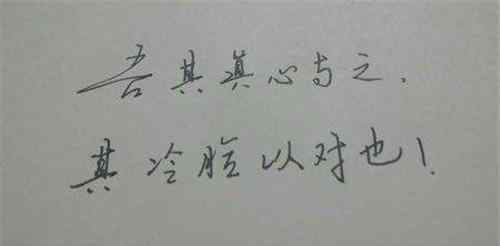 吾其真心与之.
其冷脸以对也!